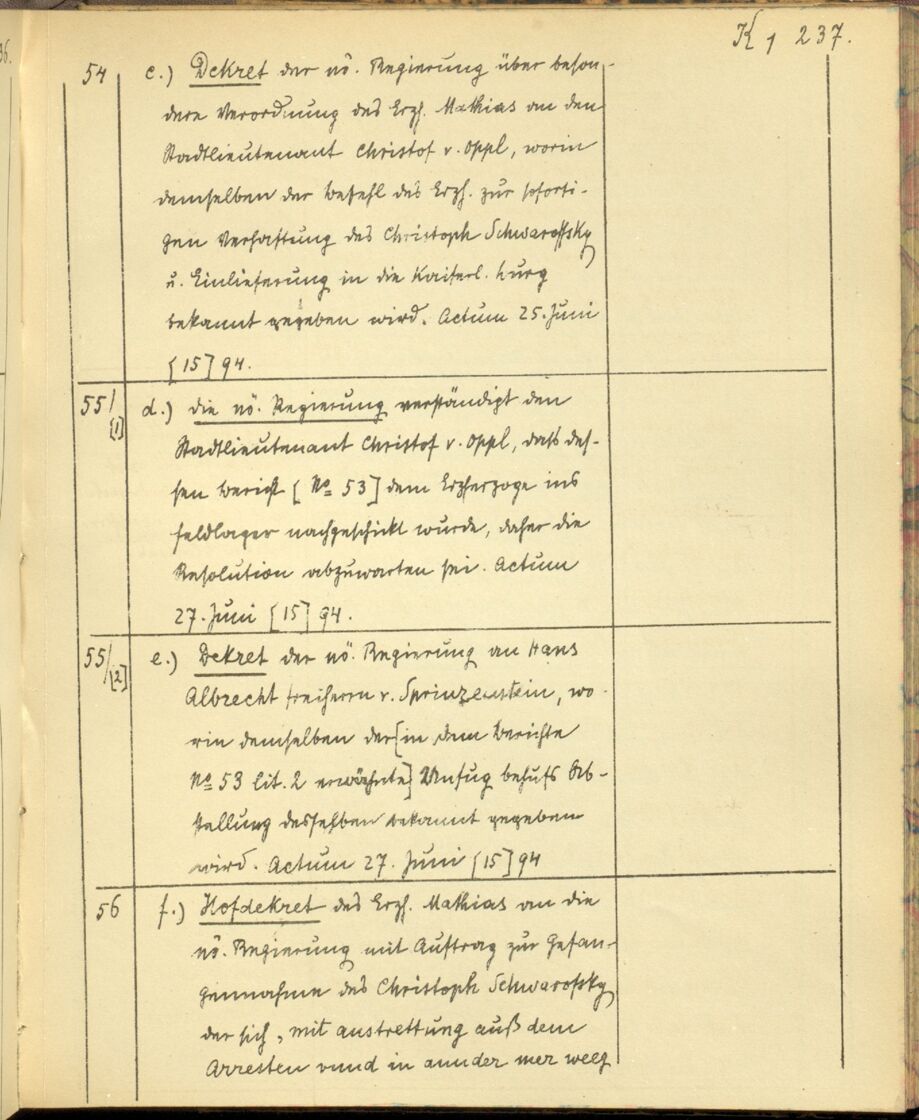 K 1 237.
54 c.) Dekret der nö. Regierung über beson-
dere Verordnung des Erzh. Mathias an den
Stadtlieutenant Christof v. Oppl, worin
demselben der Befehl des Erzh. zur soforti-
gen Verhaftung des Christoph Schwaroffsky
u. Einlieferung in die Kaiserl. Burg
bekannt gegeben wird. Actum 25. Juni
[15]94.
55/[1] d.) die nö. Regierung verständigt den
Stadtlieutenant Christof v. Oppl, dass des-
sen Bericht [No 53] dem Erzherzoge ins
Feldlager nachgeschickt wurde, daher die
Resolution abzuwarten sei. Actum
27. Juni [15]94.
55/[2] e.) Dekret der nö. Regierung an Hans
Albrecht Freiherrn v. Sprinzenstein, wo-
rin demselben der [in dem Berichte
No 53 lit. 2 erwähnte] Unfug behufs Ab-
stellung desselben bekannt gegeben
wird. Actum 27. Juni [15]94
56 f.) Hofdekret des Erzh. Mathias an die
nö. Regierung mit Auftrag zur Gefan-
gennahme des Christoph Schwarofsky
der sich, mit austrettung auß dem
Arresten vnnd in annder mer weeg